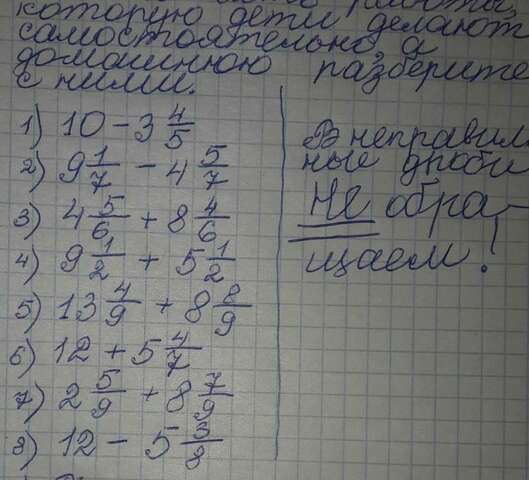 которую дети делают
самостоятельно, а
домашнюю разберите
с ними.
1) 10 - 3 4/5
2) 9 1/7 - 4 5/7
3) 4 5/6 + 8 4/6
4) 9 1/2 + 5 1/2
5) 13 4/9 + 8 8/9
6) 12 + 5 4/7
7) 2 5/9 + 8 7/9
8) 12 - 5 3/8
В неправиль
ные дроби
НЕ обра-
щаем!